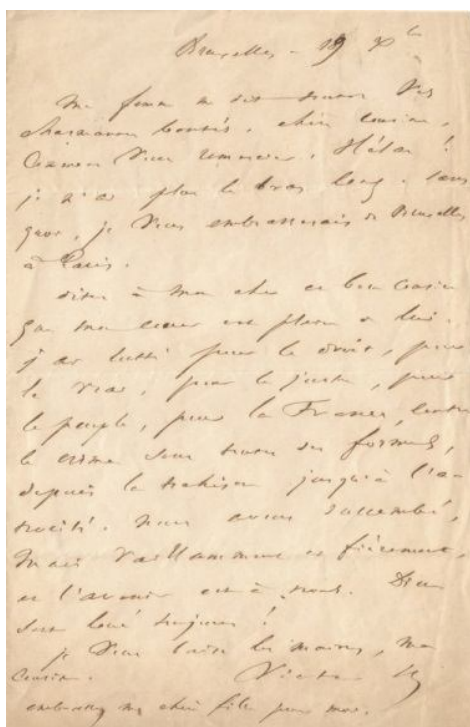 Bruxelles - 19 Xbre
Ma femme me dit toutes vos
charmantes bontés, chère cousine,
Comment vous remercier. Hélas !
je n'ai plus le bras long, sans
quoi, je vous embrasserais de Bruxelles
à Paris.
dites à mon cher et bon cousin
que mon cœur est plein de lui.
j'ai lutté pour le droit, pour
le vrai, pour le juste, pour
le peuple, pour la France, contre
le crime sous toutes ses formes,
depuis la trahison jusqu'à l'a-
trocité. Nous avons succombé,
Mais vaillamment et fièrement,
et l'avenir est à nous. Dieu
soit loué toujours !
je vous baise les mains, ma
Cousine. Victor H
embrassez ma chère fille pour moi.